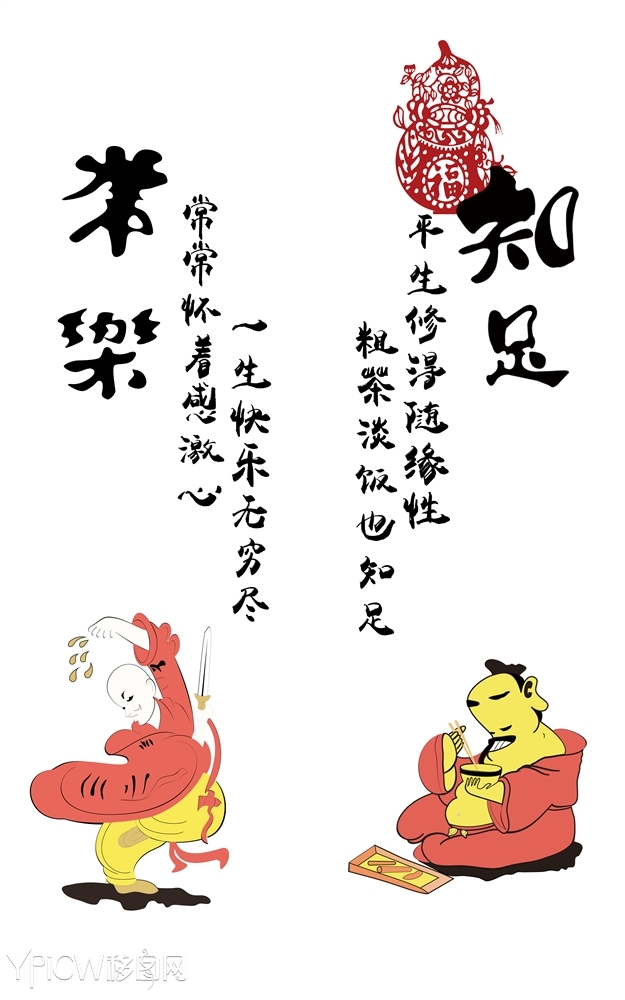 知足
平生修得随缘性
粗茶淡饭也知足
常樂
常常怀着感激心
一生快乐无穷尽
福
YPiCW移图网